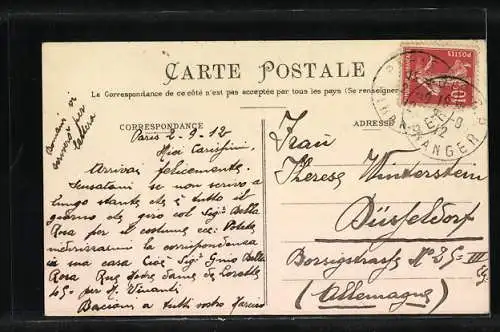 CARTE POSTALE
Le Correspondance de ce côté n'est pas acceptée par tous les pays (Se renseigner
CORRESPONDANCE
ADRESSE
POSTES
10
ETRANGER
Paris 2-9-12
Miei Carissimi,
Arrivai felicemente.
Scusatemi se non scrivo a
lungo stante che è tutto il
giorno che giro col Sig. Della
Rosa per il costume ecc: Potete
indirizzarmi la corrispondenza
in sua casa Cioè Sig. Gino Della
Rosa Rue Notre Dame de Lorette
45- per M. Vinanti
Bacioni a tutti vostro
Frau
Therese Winterstein
Düsseldorf
Borsigstrasse No 25 III
(Allemagne)